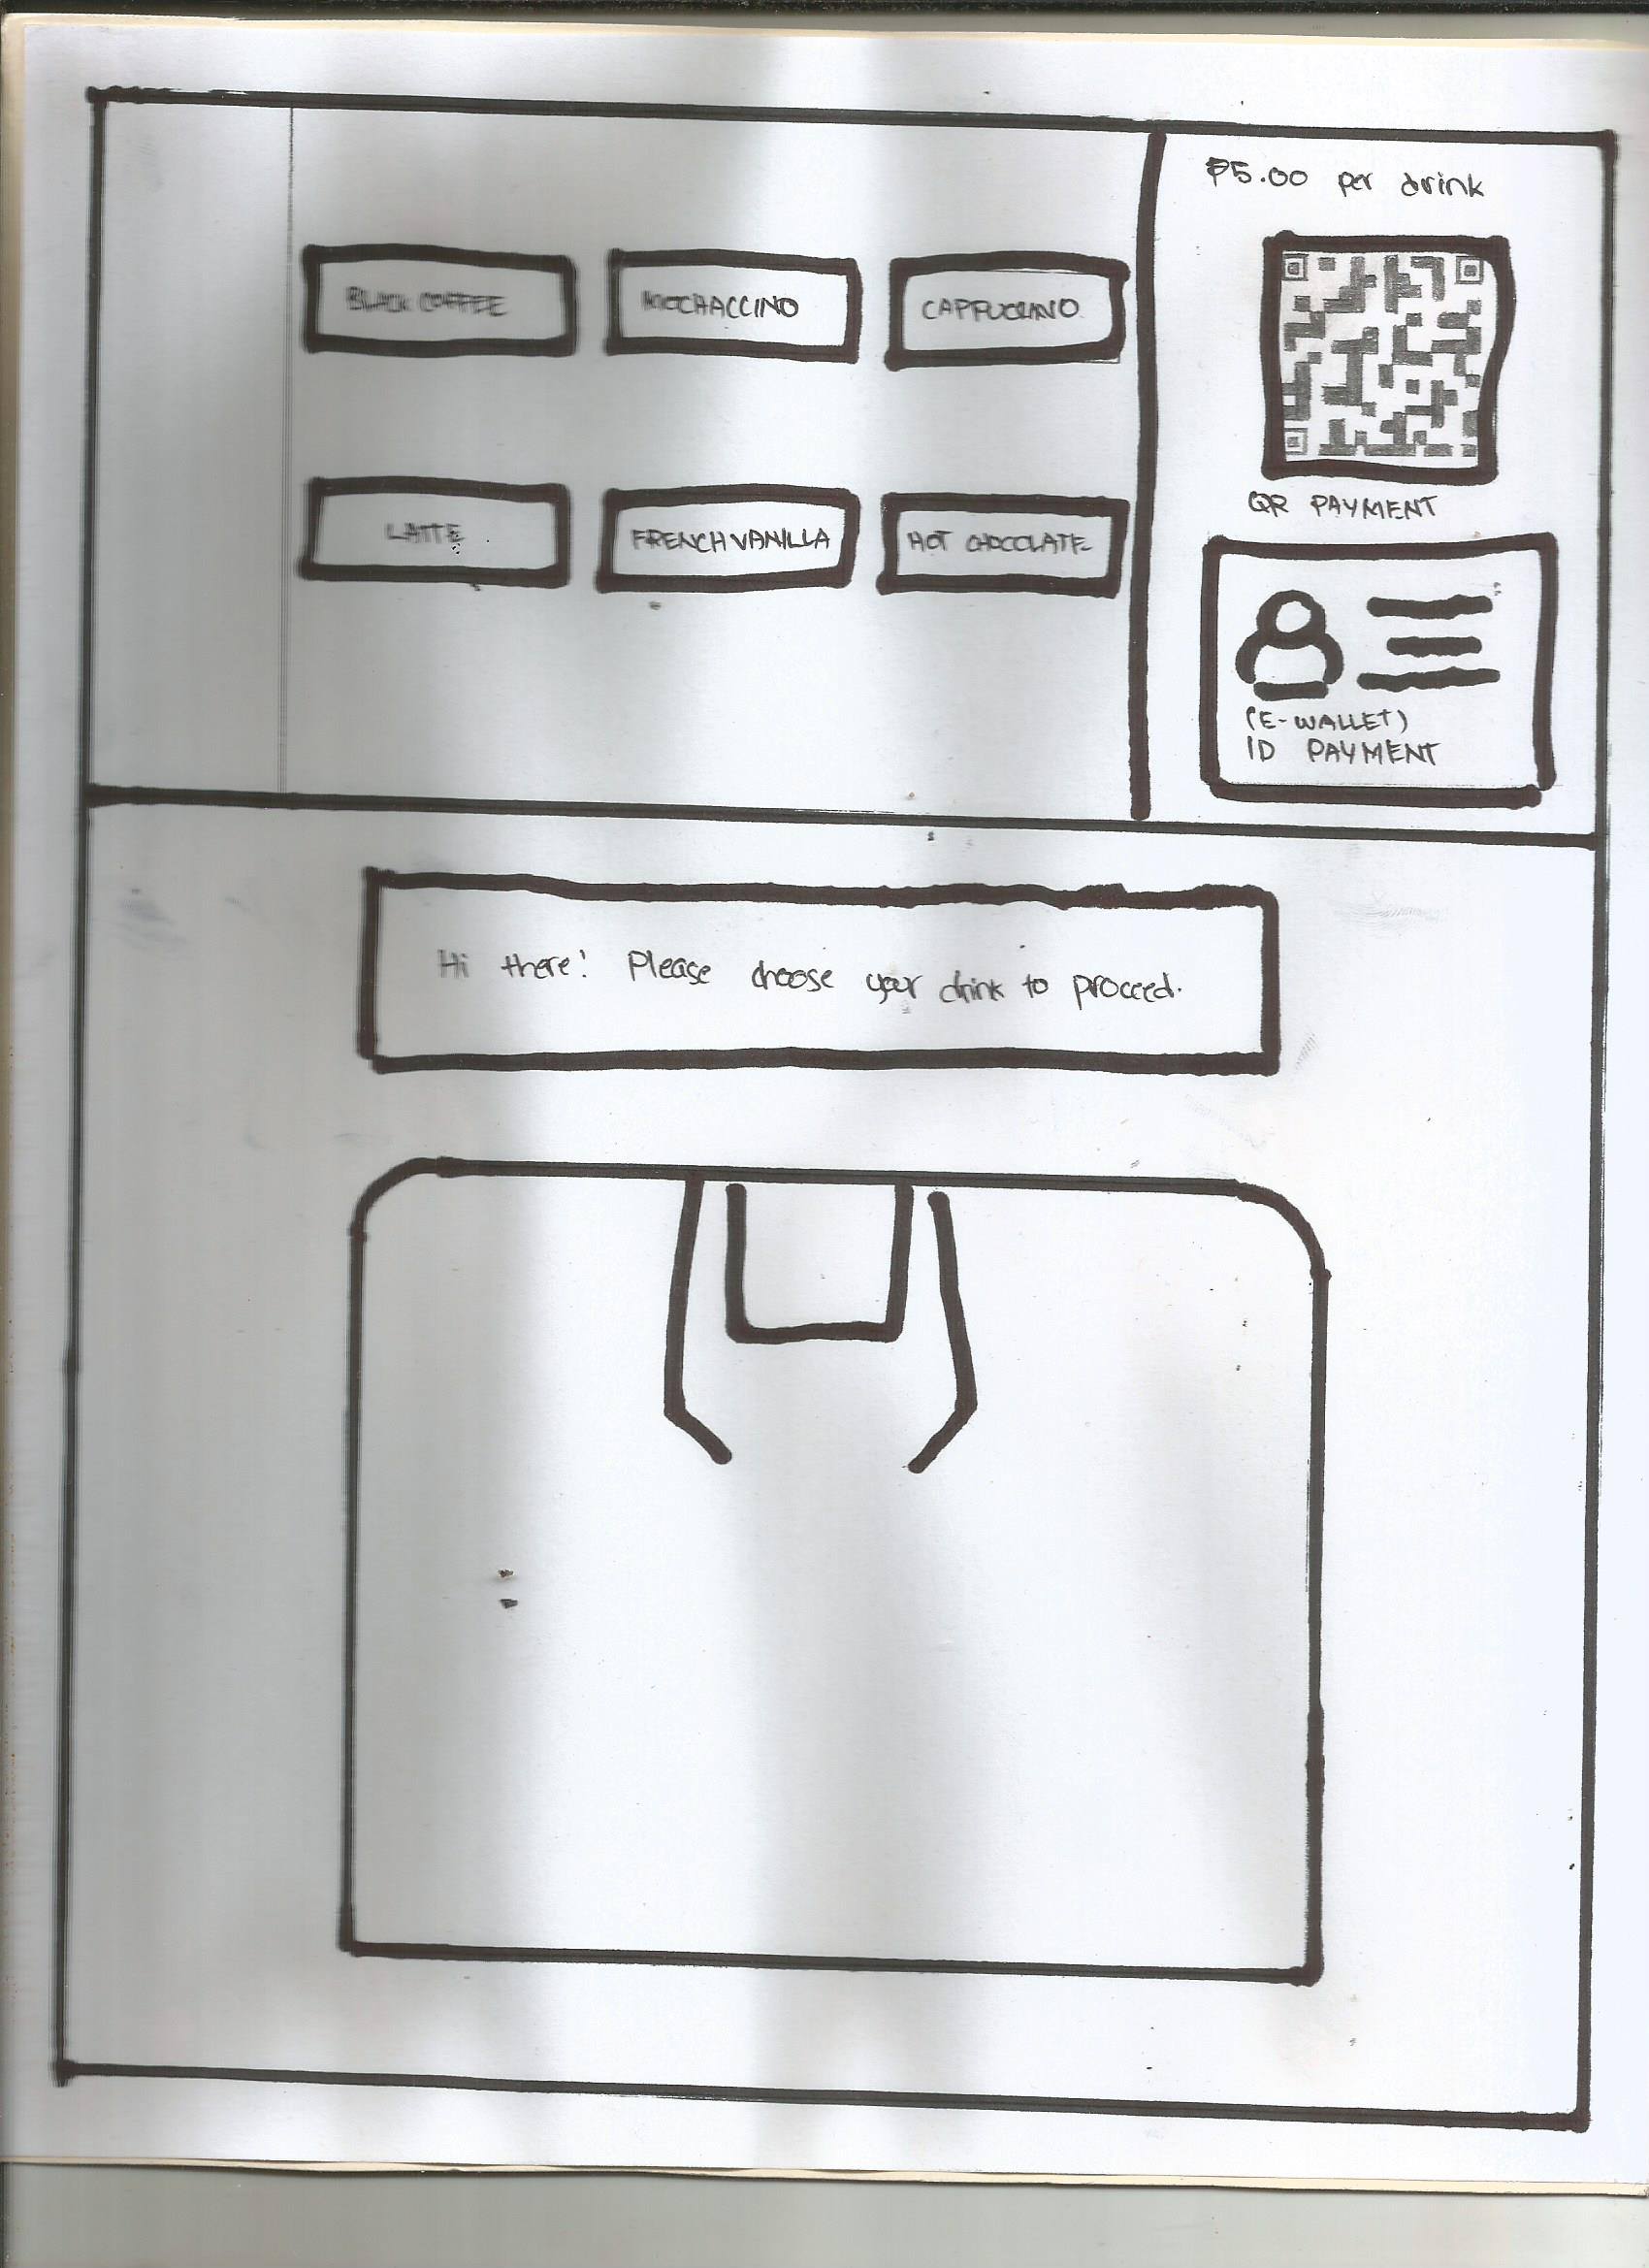 BLACK COFFEE
MOCHACCINO
CAPPUCCINO
LATTE
FRENCH VANILLA
HOT CHOCOLATE
₱5.00 per drink
QR PAYMENT
(E-WALLET)
ID PAYMENT
Hi there! Please choose your drink to proceed.